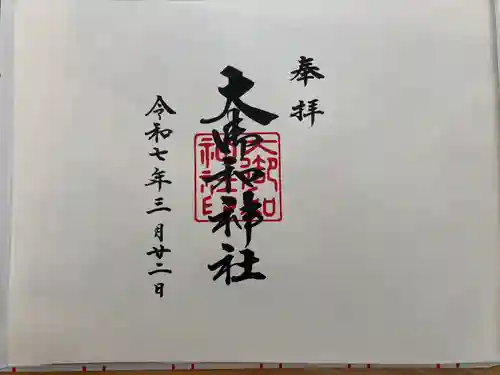 奉拝
大御和神社
大御和神社印
令和七年三月廿二日